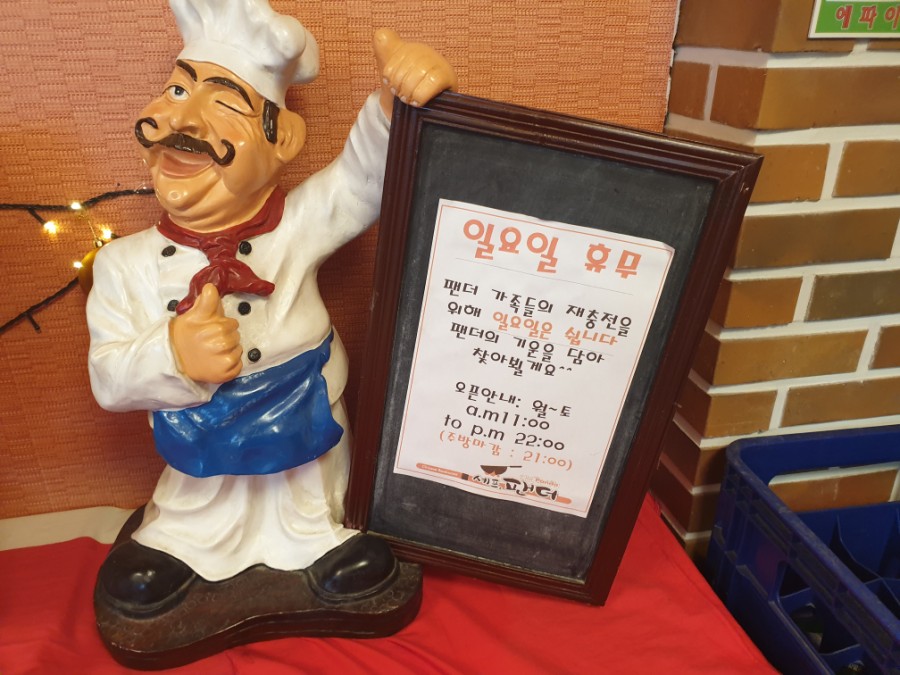 에파이
일요일 휴무
팬더 가족들의 재충전을
위해 일요일은 쉽니다
팬더의 기운을 담아
찾아뵐게요^^
오픈안내: 월~토
a.m11:00
to p.m 22:00
(주방마감 : 21:00)
셰프의팬더